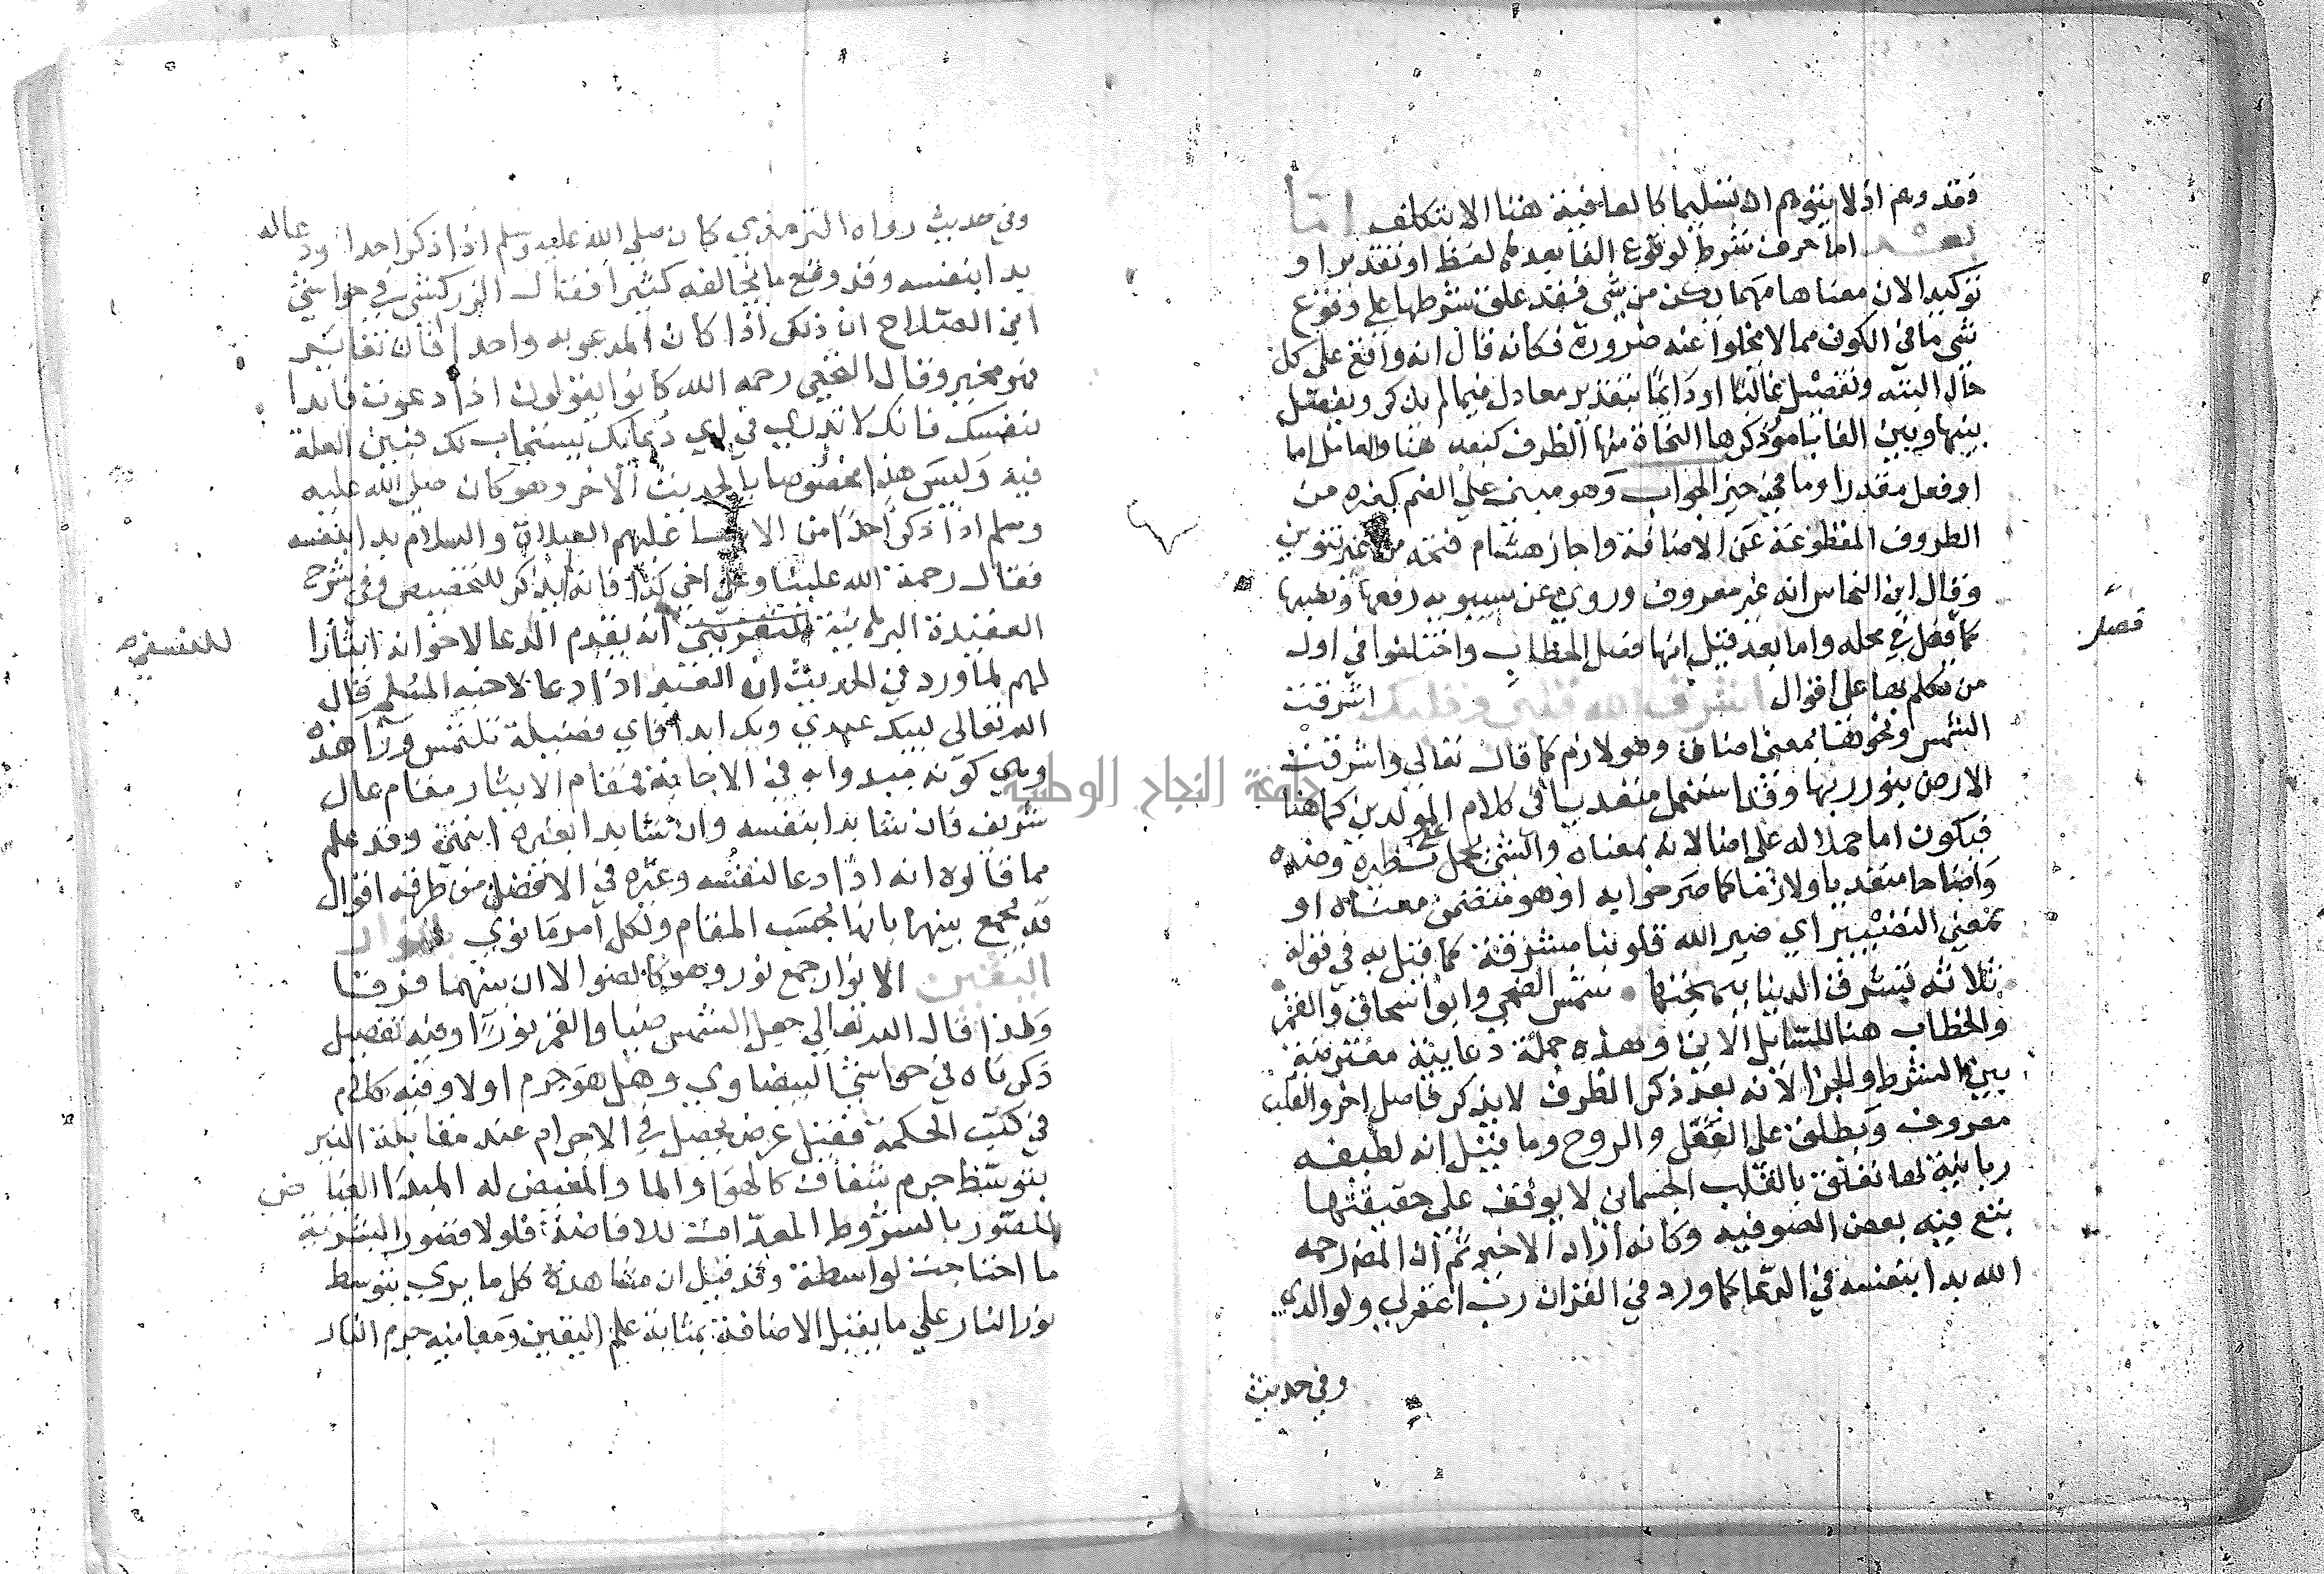 وقد وهم اذ لا يتوهم ان تسليما كالعافية هنا الا بتكلف اما
بعد اما حرف شرط لوقوع الفا بعدها لفظا او تقديرا و
توكيد لان معناها مهما يكن من شي فقد علق شرطها على وقوع
شي ما في الكون مما لا يخلوا عنه ضرورة فكانه قال انه واقع على كل
حال البتة وتفصيل غالبا او دايما بتقدير معادل فيما لم يذكر ويفصل
بينها وبين الفا بامور ذكرها النحاة منها الظرف كبعد هنا والعامل اما
او فعل مقدر او ما في حيز الجواب وهو مبني على الضم كغيره من
الظروف المقطوعة عن الاضافة واجاز هشام فتحه من غير تنوين
وقال ابن النحاس انه غير معروف وروي عن سيبويه رفعها ونصبها
كما فصل في محله واما بعد قيل انها فصل الخطاب واختلفوا في اول
من تكلم بها على اقوال اشرق الله قلبي وقلبك اشرقت
الشمس ونحوها بمعنى اضات وهو لازم كما قال تعالى واشرقت
الارض بنور ربها وقد استعمل متعديا في كلام المولدين كما هنا
فيكون اما حملا له على اضا لانه بمعناه والشي يحمل على نظيره وضده
واضا جا متعديا ولازما كما صرحوا به او هو متضمن معناه او
بمعنى التصيير اي صير الله قلوبنا مشرقة كما قيل به في قوله
ثلاثة تشرق الدنيا ببهجتها شمس الضحي وابو اسحاق والقمر
والخطاب هنا للسايل الاتي وهذه جملة دعاييه معترضة
بين الشرط والجزا لانه بعد ذكر الظرف لا يذكر فاصل اخر والقلب
معروف ويطلق على العقل والروح وما قيل انه لطيفه
ربانية لها تعلق بالقلب الجسماني لا يوقف على حقيقتها
تبع فيه بعض الصوفيه وكانه اراد الاخير ثم ان المص رحمه
الله بدا بنفسه في الدعا كما ورد في القران رب اغفر لي ولوالدي
وفي حديث
فصل
وفي حديث رواه الترمذي كان صلي الله عليه وسلم اذا ذكر احدا ودعا له
بدا بنفسه وقد وقع ما يخالفه كثيرا فقال الزركشي في حواشي
ابن الصلاح ان ذلك اذا كان المدعو به واحدا فان تغاير
فهو مخير وقال النخعي رحمه الله كانوا يقولون اذا دعوت فابدا
بنفسك فانك لا تدري في اي دعائك يستجاب لك فبين العلة
فيه وليس هذا مخصوصا بالحديث الاخر وهو كان صلى الله عليه
وسلم اذا ذكر احدا من الانبيا عليهم الصلاة والسلام بدا بنفسه
فقال رحمة الله علينا وعلى اخي كذا فانه يذكر للتخصيص وفي شرح
العقيدة البرهانية انه يقدم الدعا لاخوانه ايثارا
لهم لما ورد في الحديث ان العبد اذا دعا لاخيه المسلم قال
الله تعالى لبيك عبدي وبك ابدا فاي فضيلة تلتمس ورآ هذه
وهي كونه مبدوا به في الاجابة فمقام الايثار مقام عال
شريف فان شا بدا بنفسه وان شا بدا بغيره انتهى وقد علم
مما قالوه انه اذا دعا لنفسه وغيره في الافضل من طرفه اقوال
قد يجمع بينها بانها بحسب المقام ولكل امر ما نوي بانوار
اليقين الانوار جمع نور وهو كالضوا الا ان بينهما فرقا
ولهذا قال الله تعالي جعل الشمس ضيا والقمر نورا وفيه تفصيل
ذكرناه في حواشي البيضاوي وهل هو جرم اولا وفيه كلام
في كتب الحكمة فقيل عرض يحصل في الاجرام عند مقابلة النير
بتوسط جرم شفاف كالهوا والما والمفيض له المبدا الفياض
للصور بالشروط المعدات للافاضة فلولا قصور البشرية
ما احتاجت لواسطة وقد قيل ان مشاهدة كل ما يري بتوسط
نور النار على ما يقبل الاضافة بمثابة علم اليقين ومعاينه جرم النار
للنسفي
جامعة النجاح الوطنية